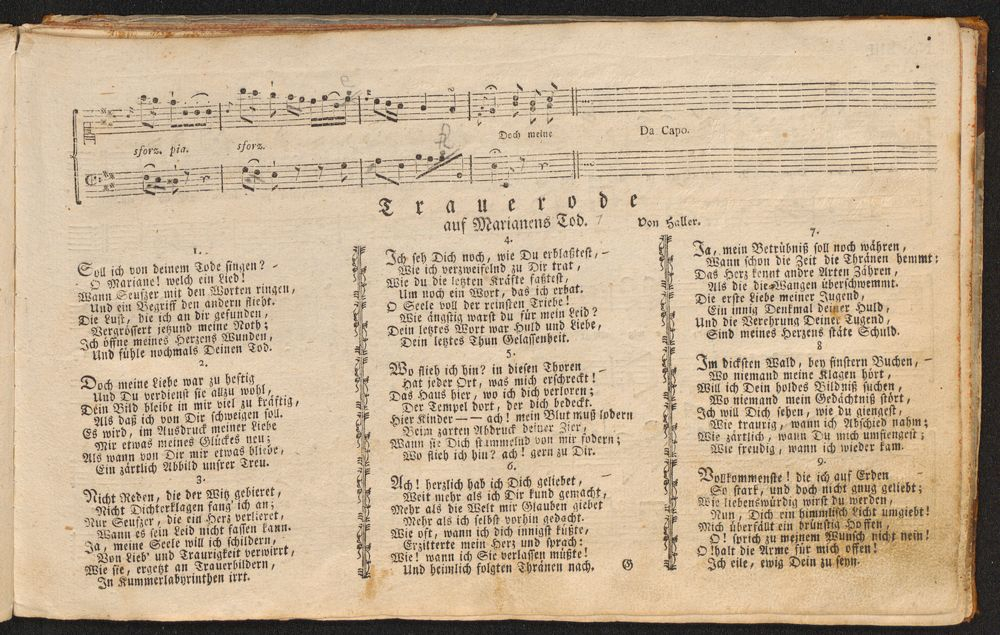 sforz. pia. sforz. Doch meine Da Capo.
Trauerode
auf Marianens Tod. Von Haller.
1.
Soll ich von deinem Tode singen? –
O Mariane! welch ein Lied!
Wann Seufzer mit den Worten ringen,
Und ein Begriff den andern flieht.
Die Lust, die ich an dir gefunden,
Vergrössert jetzund meine Noth;
Ich öffne meines Herzens Wunden,
Und fühle nochmals Deinen Tod.
2.
Doch meine Liebe war zu heftig
Und Du verdienst sie allzu wohl,
Dein Bild bleibt in mir viel zu kräftig,
Als daß ich von Dir schweigen soll.
Es wird, im Ausdruck meiner Liebe
Mir etwas meines Glückes neu;
Als wann von Dir mir etwas bliebe,
Ein zärtlich Abbild unsrer Treu.
3.
Nicht Reden, die der Witz gebieret,
Nicht Dichterklagen fang ich an;
Nur Seufzer, die ein Herz verlieret,
Wann es sein Leid nicht fassen kann.
Ja, meine Seele will ich schildern,
Von Lieb' und Traurigkeit verwirrt,
Wie sie, ergetzt an Trauerbildern,
In Kummerlabyrinthen irrt.
4.
Ich seh Dich noch, wie Du erblaßtest, –
Wie ich verzweifelnd zu Dir trat,
Wie du die letzten Kräfte faßtest,
Um noch ein Wort, das ich erbat.
O Seele voll der reinsten Triebe!
Wie ängstig warst du für mein Leid?
Dein letztes Wort war Huld und Liebe,
Dein letztes Thun Gelassenheit.
5.
Wo flieh ich hin? in diesen Thoren –
Hat jeder Ort, was mich erschreckt!
Das Haus hier, wo ich dich verloren;
Der Tempel dort, der dich bedeckt.
Hier Kinder – – ach! mein Blut muß lodern
Beim zarten Abdruck deiner Zier,
Wann sie Dich stammelnd von mir fodern;
Wo flieh ich hin? ach! gern zu Dir.
6.
Ach! herzlich hab ich Dich geliebet, –
Weit mehr als ich Dir kund gemacht,
Mehr als die Welt mir Glauben giebet
Mehr als ich selbst vorhin gedacht.
Wie oft, wann ich dich innigst küßte,
Erzitterte mein Herz und sprach:
Wie! wann ich Sie verlassen müßte!
Und heimlich folgten Thränen nach. G
7.
Ja, mein Betrübniß soll noch währen,
Wann schon die Zeit die Thränen hemmt:
Das Herz kennt andre Arten Zähren,
Als die die Wangen überschwemmt.
Die erste Liebe meiner Jugend,
Ein innig Denkmal deiner Huld,
Und die Verehrung Deiner Tugend,
Sind meines Herzens stäte Schuld.
8
Im dicksten Wald, bey finstern Buchen, –
Wo niemand meine Klagen hört,
Will ich Dein holdes Bildniß suchen,
Wo niemand mein Gedächtniß stört,
Ich will Dich sehen, wie du giengest,
Wie traurig, wann ich Abschied nahm;
Wie zärtlich, wann Du mich umfiengest;
Wie freudig, wann ich wieder kam.
9.
Vollkommenste! die ich auf Erden –
So stark, und doch nicht gnug geliebt;
Wie liebenswürdig wirst du werden,
Nun, Dich ein himmlisch Licht umgiebt!
Mich überfällt ein brünstig Hoffen,
O! sprich zu meinem Wunsch nicht nein!
O! halt die Arme für mich offen!
Ich eile, ewig Dein zu seyn.